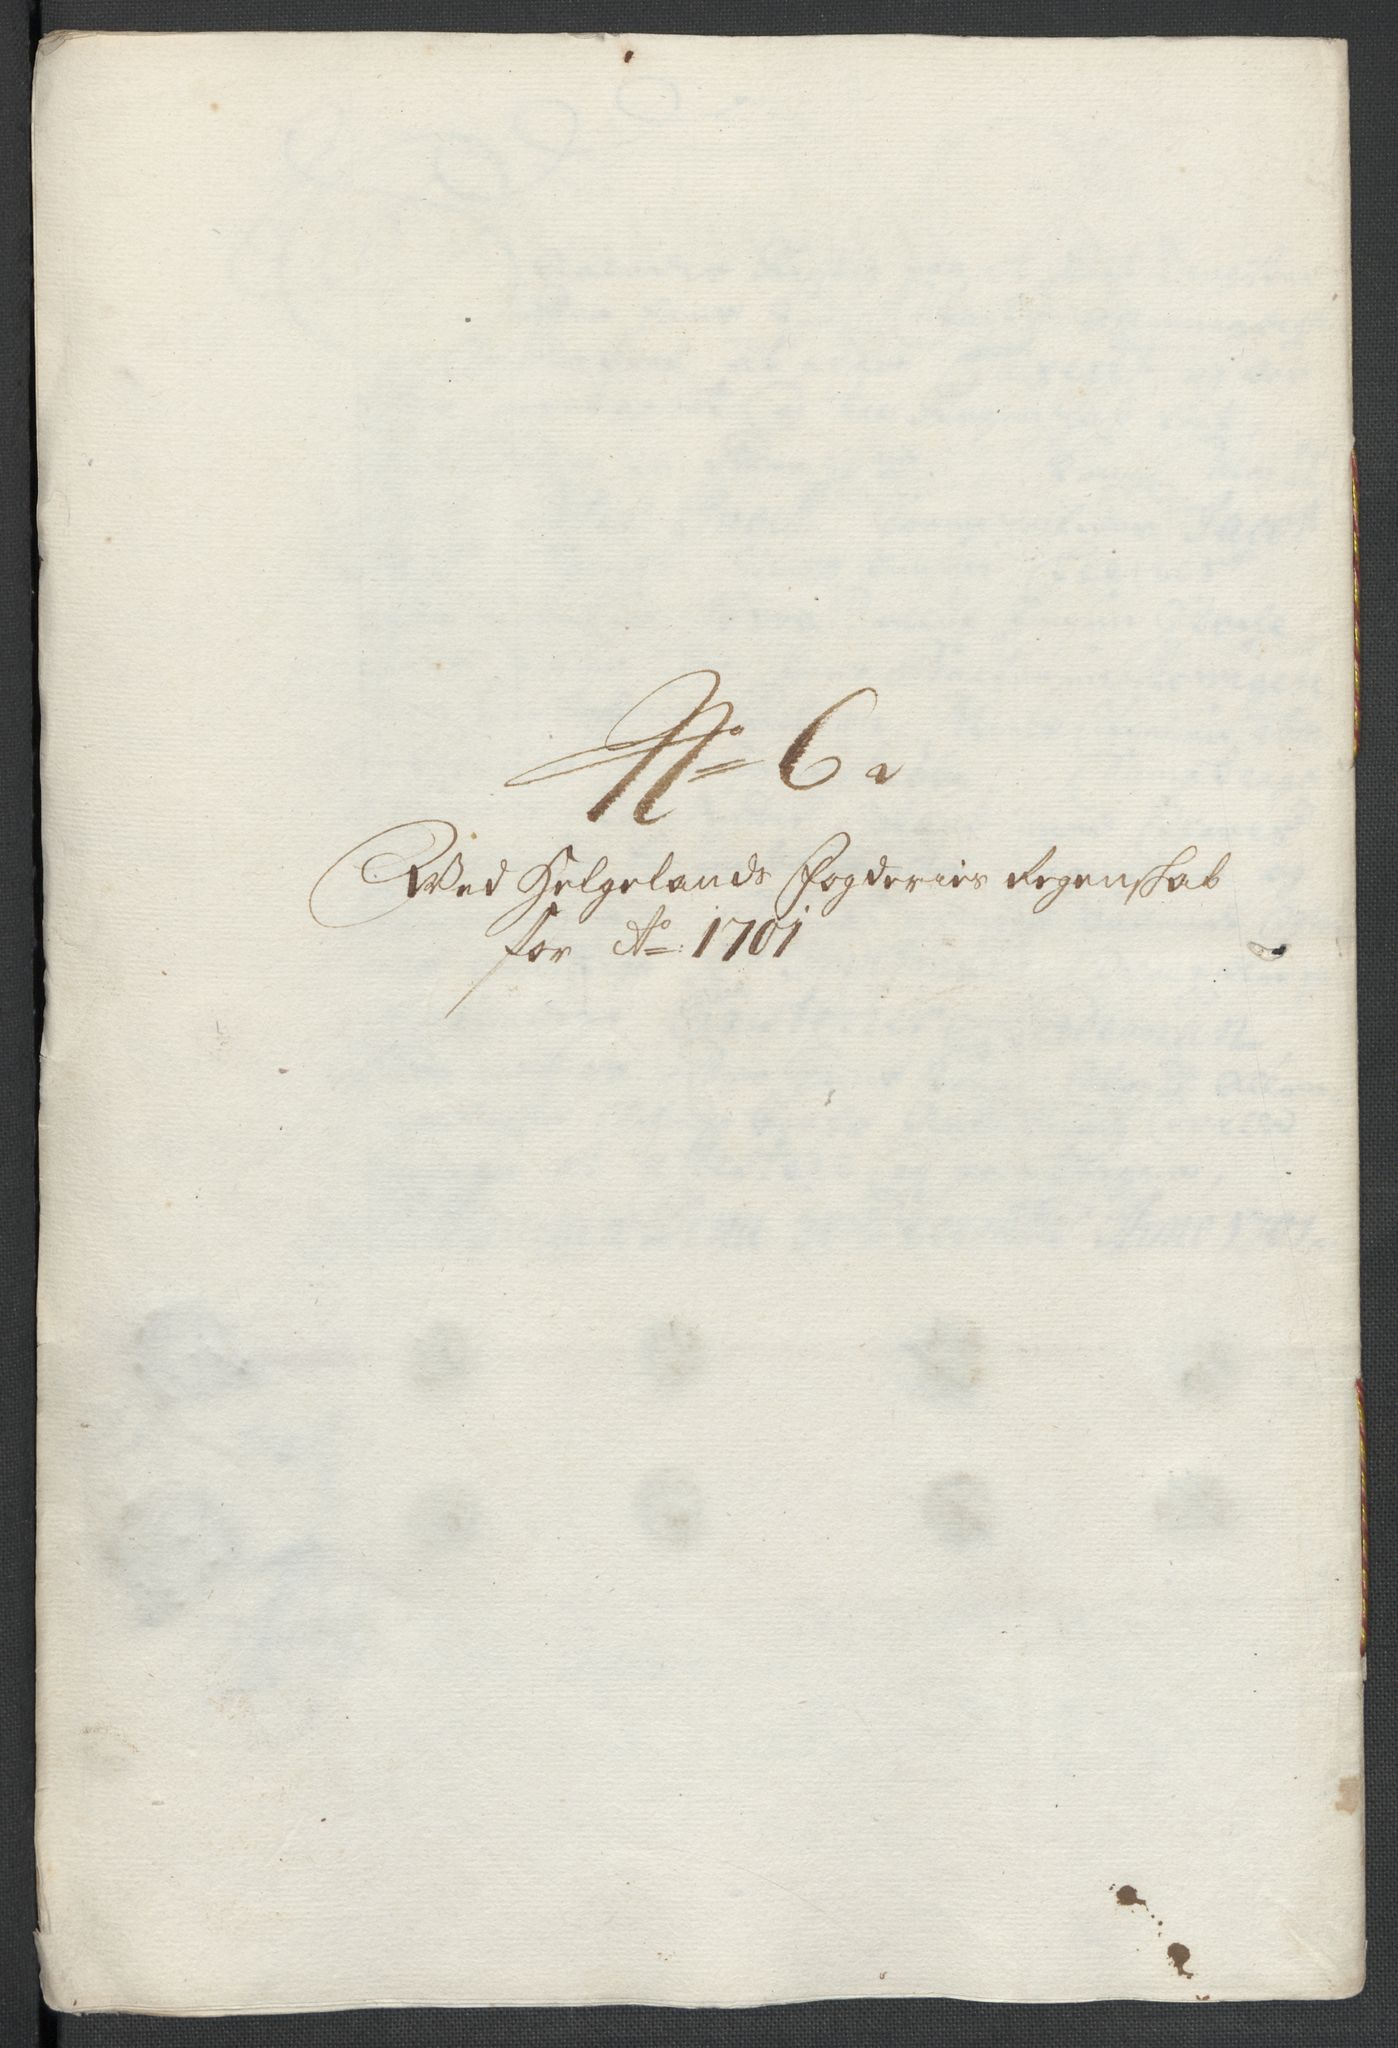 No 6.
Ved Helgelands Fogderies Regenskab
for Ao: 1701